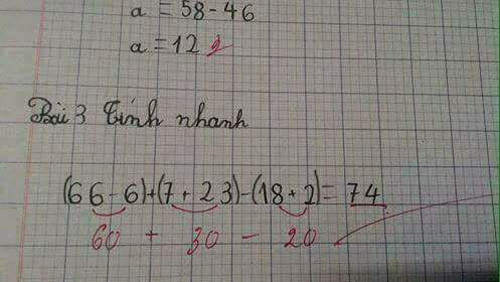 a = 58 - 46
a = 12
Bài 3 Tính nhanh
(66 - 6) + (7 + 23) - (18 + 2) = 74
60 + 30 - 20